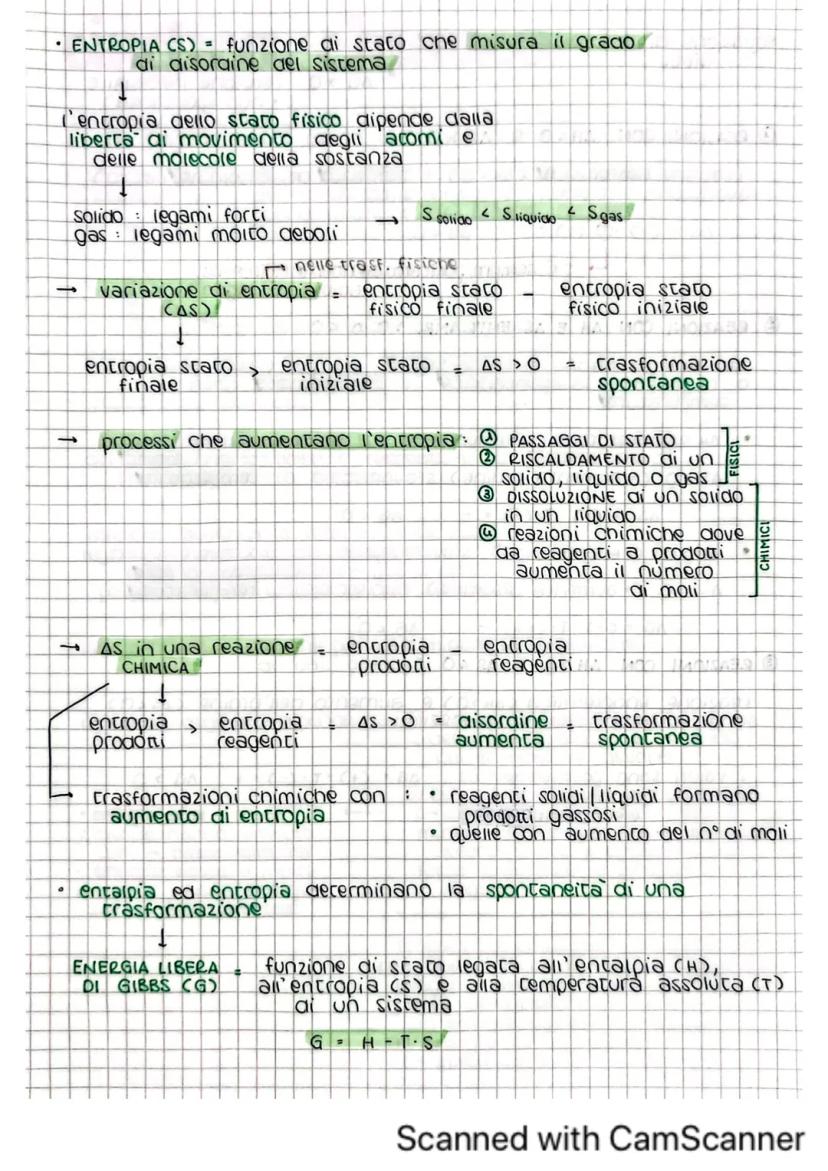 • ENTROPIA (S) = funzione di stato che misura il grado
di disordine del sistema
↓
l'entropia dello stato fisico dipende dalla
libertà di movimento degli atomi e
delle molecole della sostanza
↓
solido : legami forti → S solido < S liquido < S gas
gas : legami molto deboli
→ nelle trasf. fisiche
→ variazione di entropia = entropia stato − entropia stato
(ΔS) fisico finale fisico iniziale
↓
entropia stato > entropia stato = ΔS > 0 = trasformazione
finale iniziale spontanea
→ processi che aumentano l'entropia : ① PASSAGGI DI STATO
② RISCALDAMENTO di un
solido, liquido o gas
FISICI
③ DISSOLUZIONE di un solido
in un liquido
④ reazioni chimiche dove
da reagenti a prodotti
aumenta il numero
di moli
CHIMICI
→ ΔS in una reazione = entropia − entropia
CHIMICA prodotti reagenti
↓
entropia > entropia = ΔS > 0 = disordine = trasformazione
prodotti reagenti aumenta spontanea
→ trasformazioni chimiche con : • reagenti solidi/liquidi formano
aumento di entropia prodotti gassosi
• quelle con aumento del n° di moli
• entalpia ed entropia determinano la spontaneità di una
trasformazione
↓
ENERGIA LIBERA = funzione di stato legata all'entalpia (H),
DI GIBBS (G) all'entropia (S) e alla temperatura assoluta (T)
di un sistema
G = H - T · S
Scanned with CamScanner